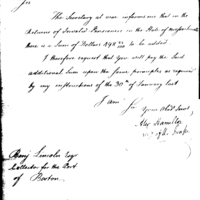 Sir
The Secretary at war informs me that in the
Returns of Invalid Pensioners in the State of Massachusetts
there is a Sum of Dollars 298 to be added
I therefore request that you will pay the said
additional Sum upon the same principles as required
by my instructions of the 30th of January last
I am Sir
Your Obedt Servt
Alex Hamilton
Benj Lincoln Esq
Collector for the Port
of Boston